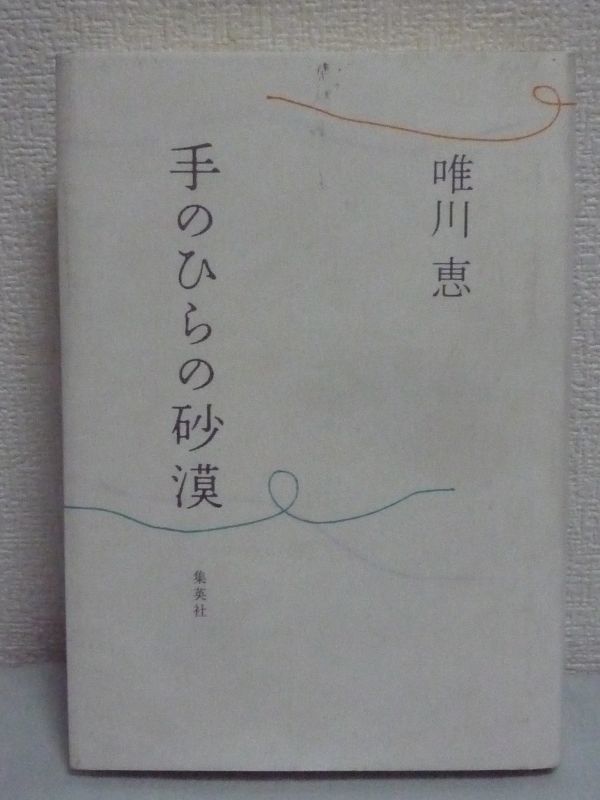 唯川 恵
手のひらの砂漠
集英社